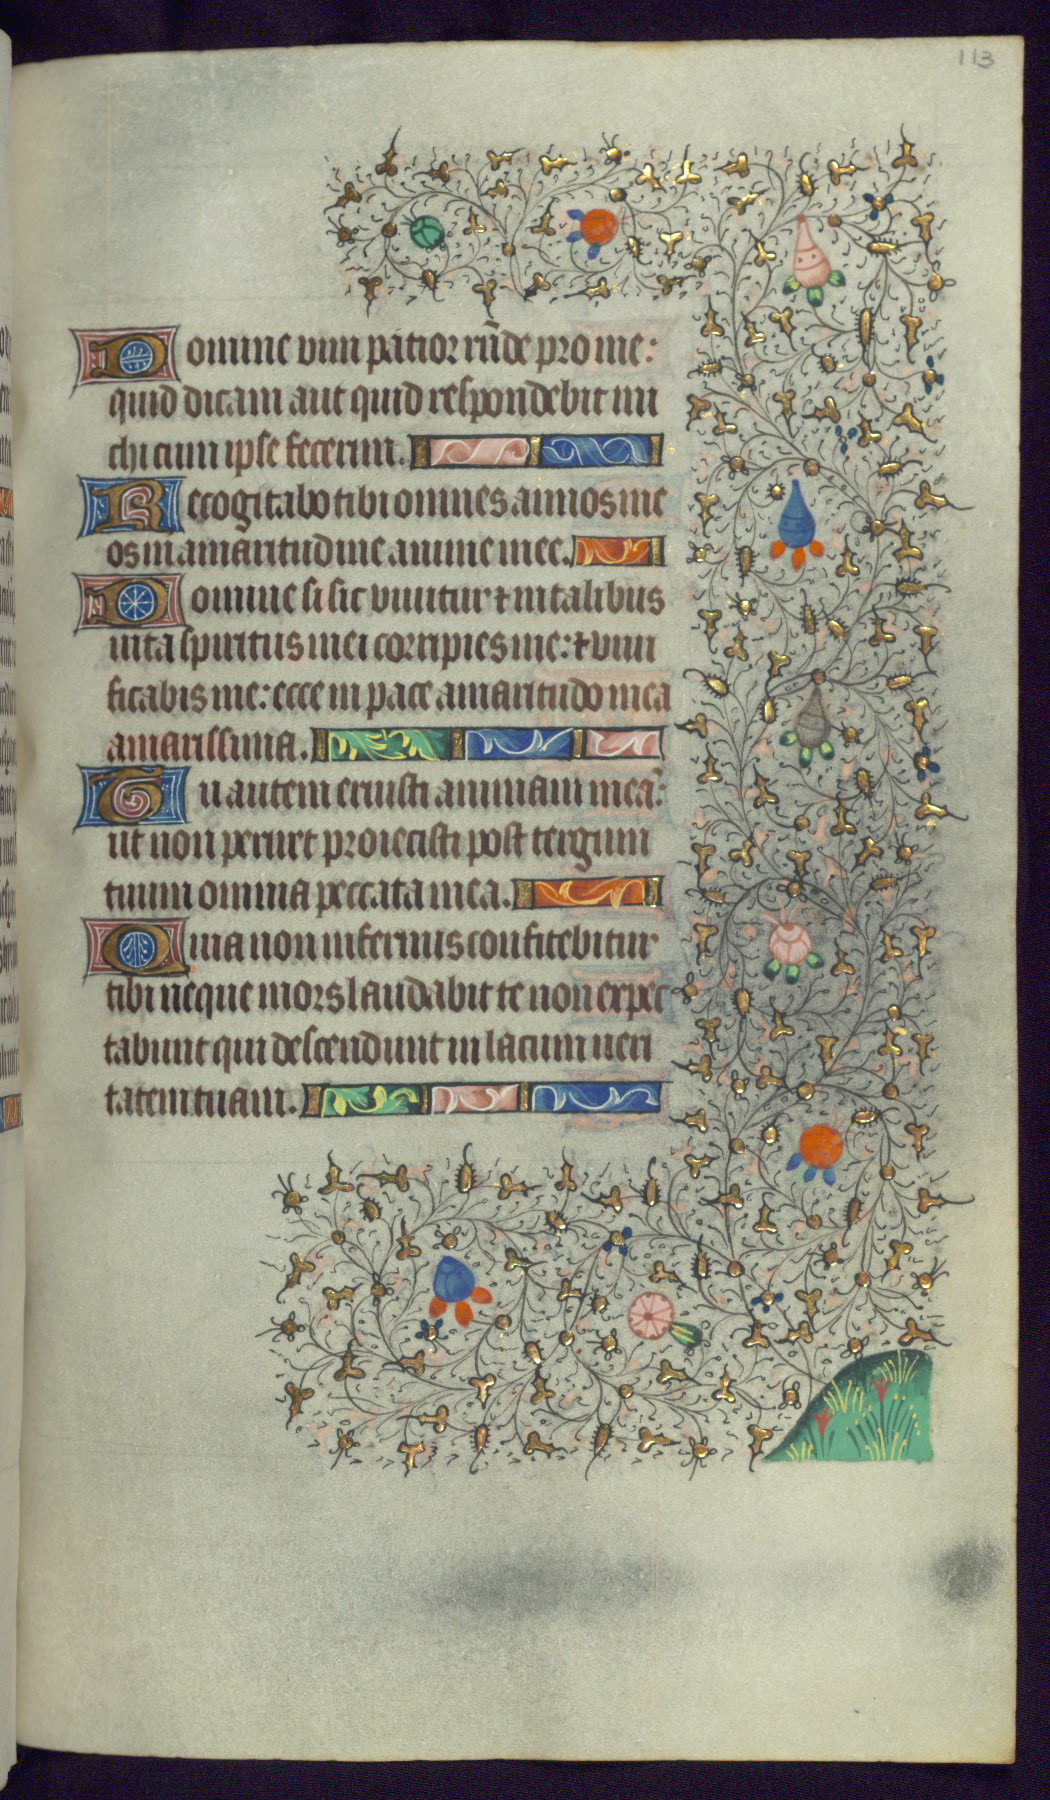 113
Domine vim patior rñde pro me:
quid dicam aut quid respondebit mi
chi cum ipse fecerim.
Recogitabo tibi omnes annos me
os in amaritudine anime mee.
Domine si sic vivitur ⁊ in talibus
vita spiritus mei corripies me: ⁊ vivi
ficabis me: ecce in pace amaritudo mea
amarissima.
Tu autem eruisti animam meā:
ut non periret proiecisti post tergum
tuum omnia peccata mea.
Quia non infernus confitebitur
tibi neque mors laudabit te non expec
tabunt qui descendunt in lacum veri
tatem tuam.